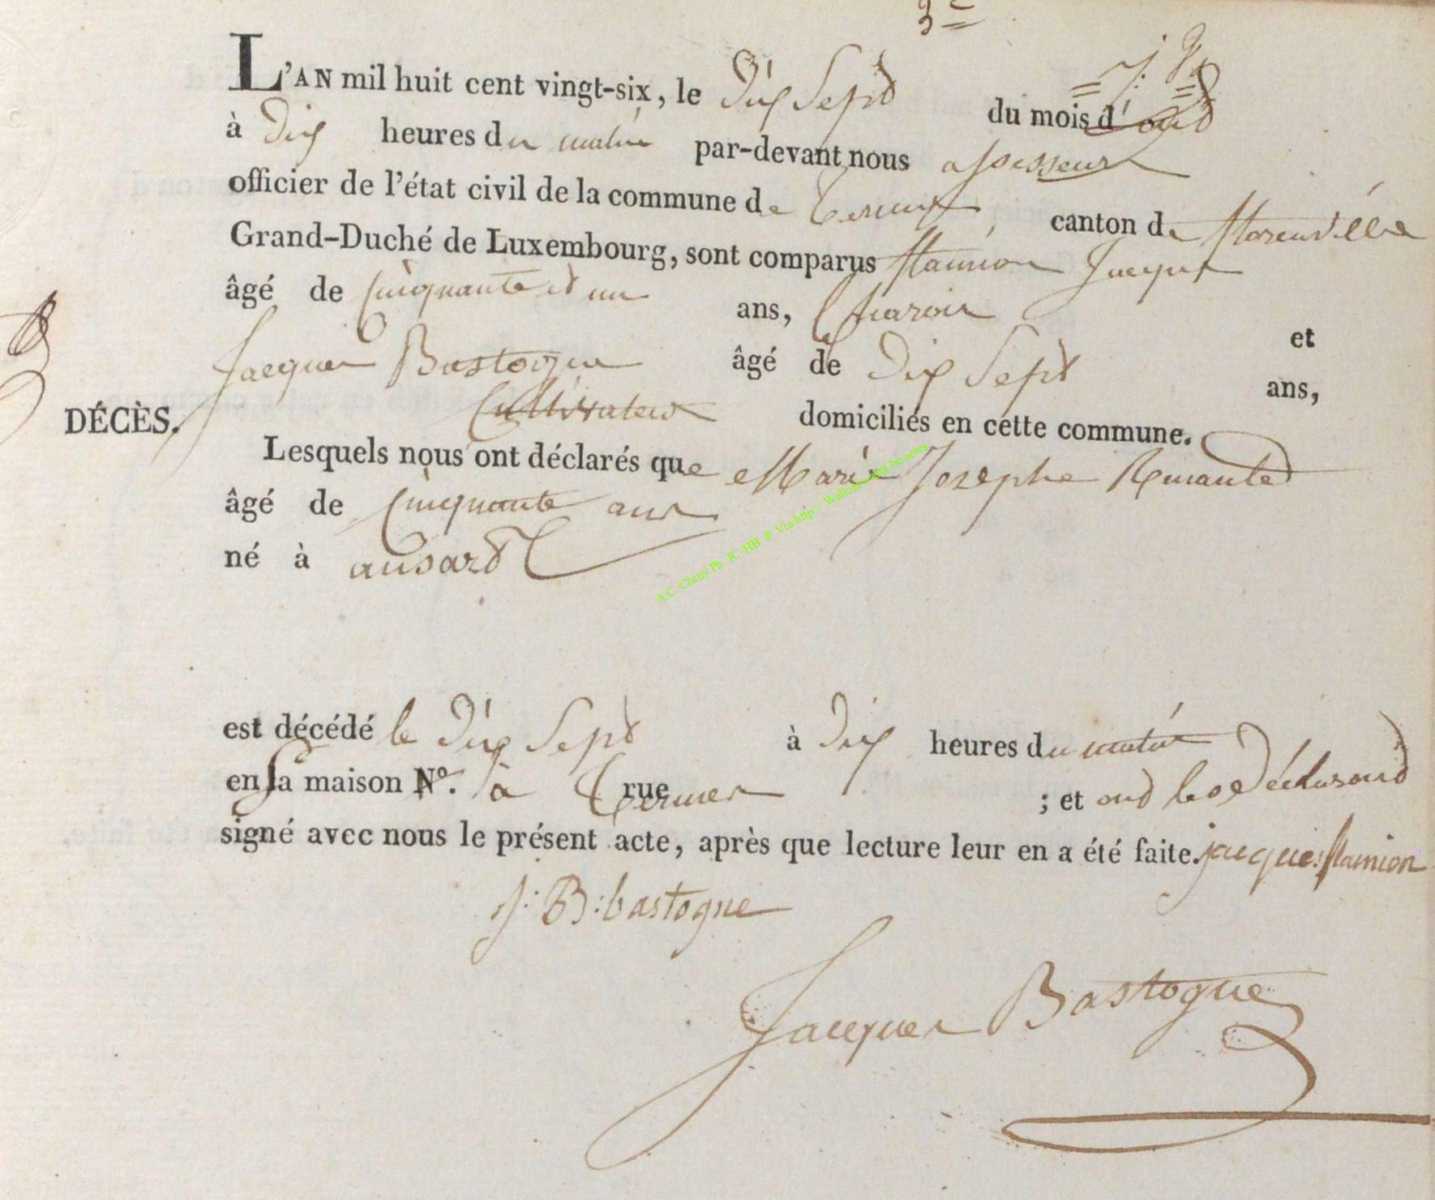 3e
L'AN mil huit cent vingt-six, le Dix Sept du mois d'
à Dix heures du matin par-devant nous assesseur
officier de l'état civil de la commune de Termes canton de florenville
Grand-Duché de Luxembourg, sont comparus flamion Jacques
âgé de Cinquante et un ans, Charon et
Jacques Bastogne âgé de Dix Sept ans,
Cultivateur domiciliés en cette commune.
DÉCÈS.
Lesquels nous ont déclarés que Marie Josephe
âgé de Cinquante ans
né à ansart
est décédé le Dix Sept à Dix heures du matin
en Sa maison No. à rue Termes ; et ont les Déclarant
signé avec nous le présent acte, après que lecture leur en a été faite. jacques flamion
j: B: bastogne
Jacques Bastogne